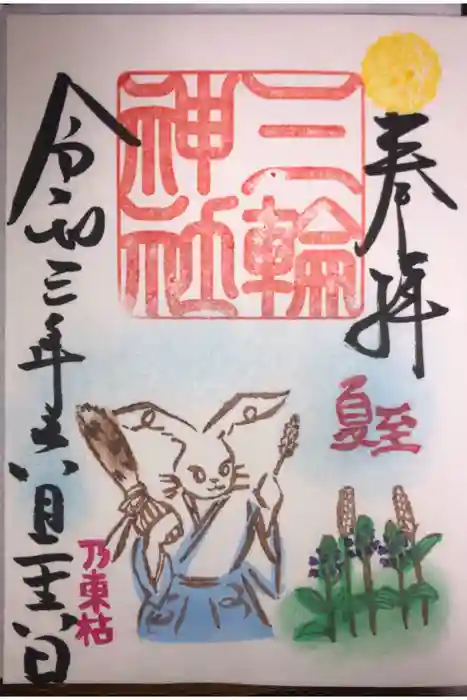 奉拝
三輪
神社
夏至
令和三年六月二十六日
乃東枯